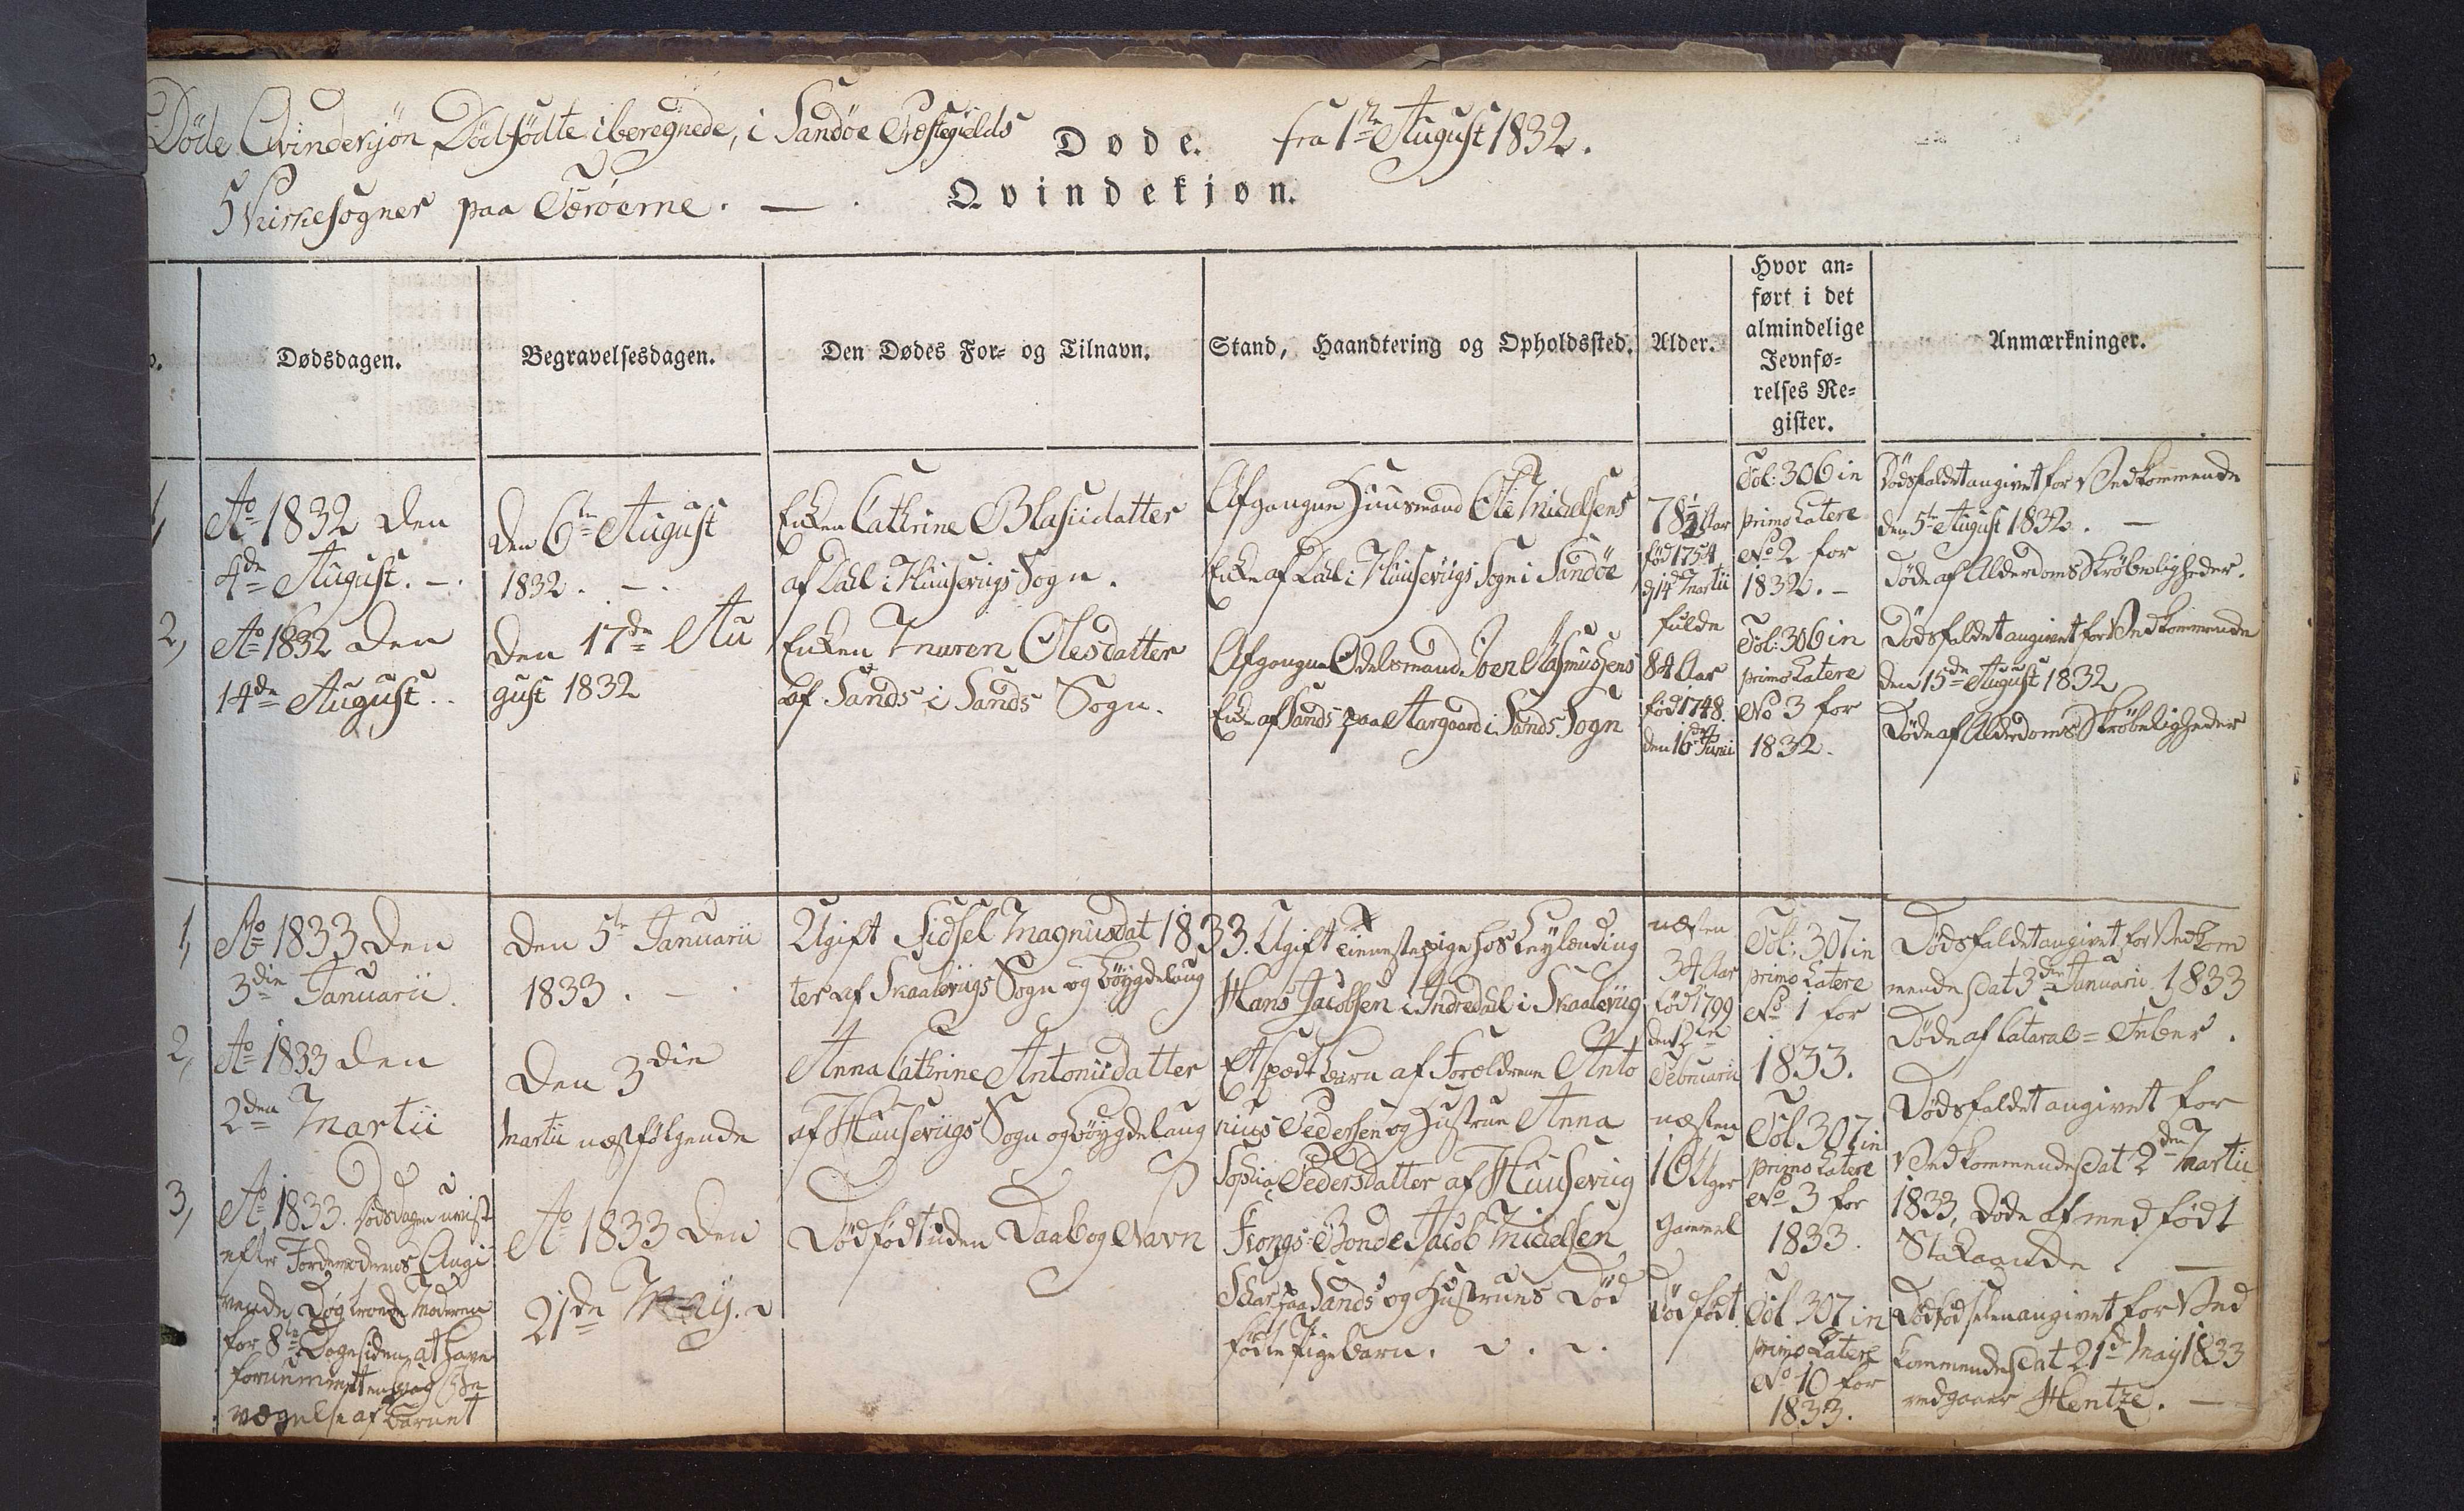 Døde Qvindekjøn, Dødfødte iberegnede, i Sandøe Præstegields
Døde. fra 1te August 1832.
5 Kirkesogner paa Færøerne. — .
Qvindekjøn.
Dødsdagen.
Begravelsesdagen.
Den Dødes For- og Tilnavn.
Stand, Haandtering og Opholdssted.
Alder.
Hvor an-
ført i det
almindelige
Jevnfø-
relses Re-
gister.
Anmærkninger.
1,
Ao 1832 den
4de August. — .
den 6te August
1832. — .
Enken Cathrine Blasiidatter
af Dahl i Huusevigs Sogn.
Afgangne Huusmand Ole Michelsens
Enke af Dahl i Huusevigs Sogn i Sandöe
78½ Aar
född 1754
d 14de Martii
Fol: 306 in
primo Latere
No 2 for
1832. —
Dödsfaldet angivet for Vedkommende
den 5te August 1832. —
Döde af Alderdoms Skröbeligheder.
2,
Ao 1832 den
14de August. .
den 17de Au
gust 1832
Enken Maren Olesdatter
af Sands i Sands Sogn.
Afgangne Odelsmand Joen Rasmussens
Enke af Sands paa Aargaard i Sands Sogn
fulde
84 Aar
föd 1748.
den 16de Junii
Fol: 306 in
primo Latere
No 3 for
1832.
Dödsfaldet angivet for Vedkommende
den 15de August 1832
Döde af Alderdoms Skröbeligheder
1,
Ao 1833 den
3die Januarii.
den 5te Januarii
1833. — .
Ugift Sidsel Magnusdat 1833.
ter af Skaalevigs Sogn og Böygdelaug
Ugift Tienestepige hos Leylænding
Hans Jacobsen i Indredahl i Skaalevig
næsten
34 Aar
föd 1799
den 12te
Februarii
Fol: 307 in
primo Latere
No 1 for
1833.
Dödsfaldet angivet for Vedkom
mende dat 3die Januarii 1833
Döde af Cataral = Feber.
2,
Ao 1833 den
2den Martii
den 3die
Martii næstfölgende
Anna Cathrine Antoniidatter
af Huusevigs Sogn og Böygdelaug
Et spædt Barn af Forældrene Anto
nius Pedersen og Hustrue Anna
Sophia Pedersdatter af Huusevig
næsten
16 Uger
gammel
Fol 307 in
primo Latere
No 3 for
1833.
Dödsfaldet angivet for
Vedkommende dat 2den Martii
1833, Döde af medfödt
Stakaande. —
3,
Ao 1833. Dödsdagen uvist
efter Jordemoderens Angi
vende Dog troede Moderen
for 8te Dage siden at have
fornummet en svag Be
vægelse af Barnet
Ao 1833 den
21de May.
Dödfödt uden Daab og Navn
Kongs-Bonde Jacob Michelsen
paa Sands og Hustrues Död
födte Pigebarn.
Dödfödt
Fol 307 in
primo Latere
No 10 for
1833.
Dödfödselen angivet for Ved
kommende dat 21de May 1833
vedgaaer Hentze. —